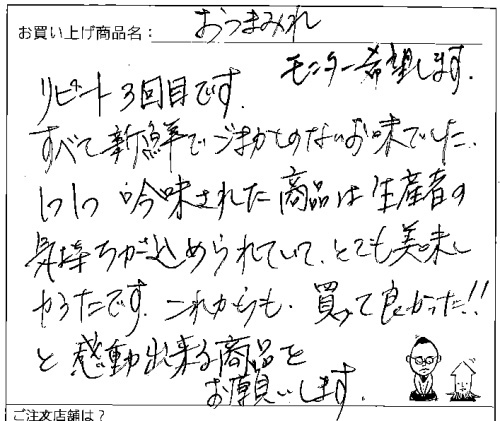 お買い上げ商品名：おつまみれ
モニター希望します.
リピート3回目です.
すべて新鮮でごまかしのないお味でした.
1つ1つ 吟味された商品は生産者の
気持ちが込められていて、とても美味し
かったです. これからも、買って良かった!!
と感動出来る商品を
お願いします.
ご注文店舗は？